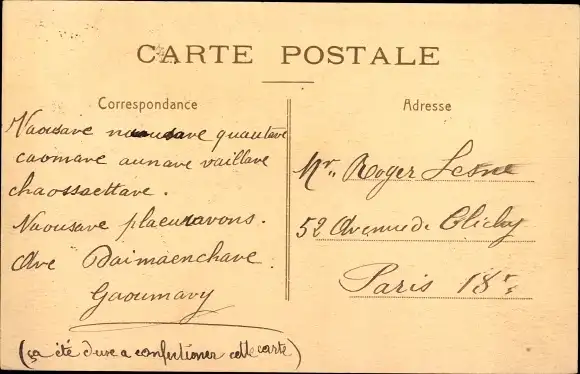 CARTE POSTALE
Correspondance
Naousave naousave quantave
caomave aunave vaillave
chaossaettave.
Naousave placuravons.
Ave Daimaenchave.
Gaoumavy
(ça été dure a confectioner cette carte)
Adresse
Mr. Roger Lesne
52 Avenue de Clichy
Paris 18e